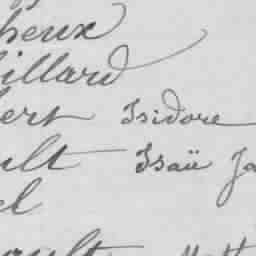 heux
illard
bert Isidore
ult Isaü Ja
el
ault